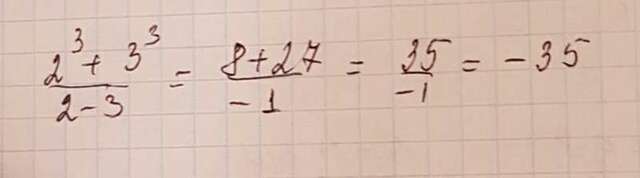 (2³ + 3³)/(2 - 3) = (8 + 27)/(-1) = 35/(-1) = -35